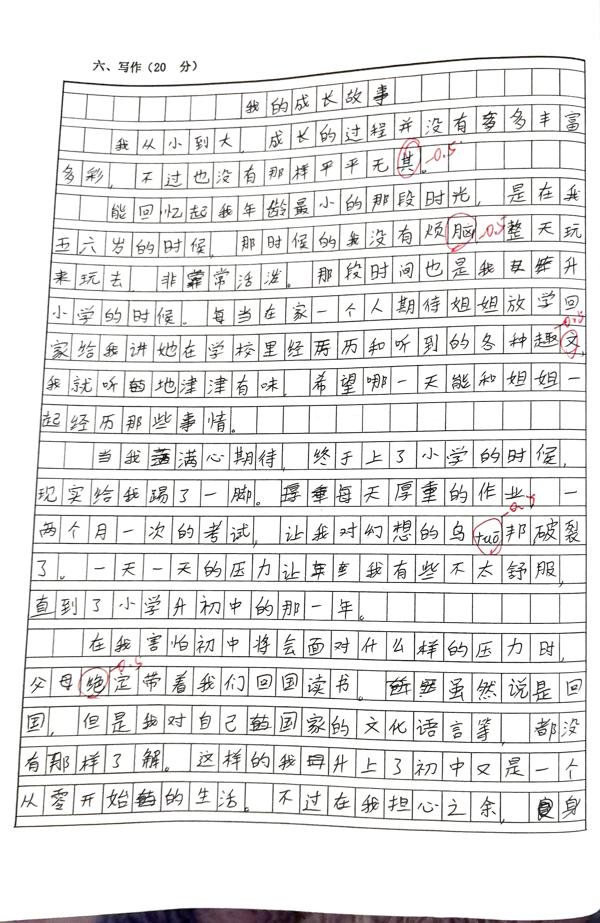 六、写作(20 分)
我的成长故事
我从小到大,成长的过程并没有多多丰富
多彩,不过也没有那样平平无其。-0.5
能回忆起我年龄最小的那段时光,是在我
五六岁的时候,那时候的我没有烦脑-0.5整天玩
来玩去,非常活泼。那段时间也是我升
小学的时候。每当在家一个人期待姐姐放学回
-0.5
家给我讲她在学校里经历和听到的各种趣文,
我就听地津津有味。希望哪一天能和姐姐一
起经历那些事情。
当我满心期待,终于上了小学的时候,
现实给我踢了一脚。每天厚重的作业,一
两个月一次的考试,让我对幻想的乌tuō邦破裂
了。一天一天的压力让我有些不太舒服,
直到了小学升初中的那一年。
在我害怕初中将会面对什么样的压力时,
-0.5
父母绝定带着我们回国读书。虽然说是回
国,但是我对自己国家的文化语言等,都没
有那样了解。这样的我升上了初中又是一个
从零开始的生活。不过在我担心之余,身